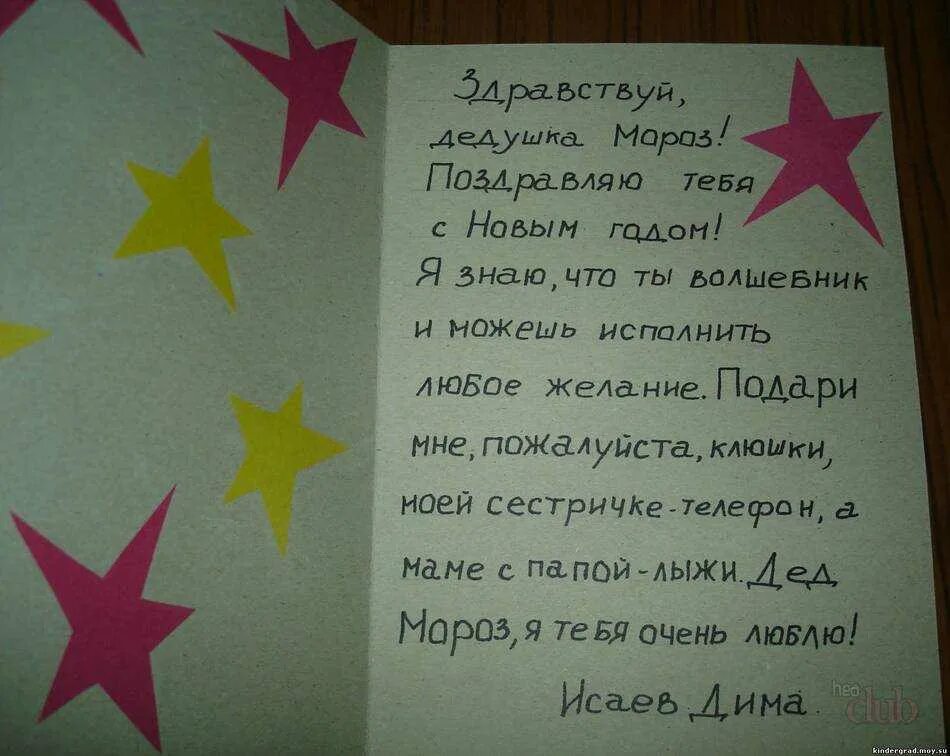 Здравствуй,
дедушка Мороз!
Поздравляю тебя
с Новым годом!
Я знаю, что ты волшебник
и можешь исполнить
любое желание. Подари
мне, пожалуйста, клюшки,
моей сестричке - телефон, а
маме с папой - лыжи. Дед
Мороз, я тебя очень люблю!
Исаев Дима.
club
kindergrad.moy.su